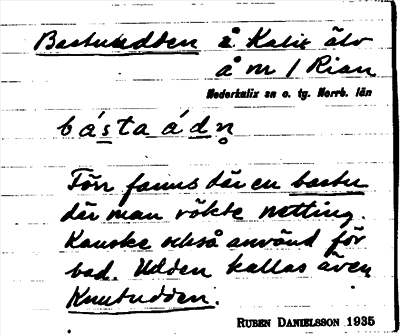 Bastuudden å Kalix älv
å m / Rian
Nederkalix sn o. tg. Norrb. län
bástaádn̥
Förr fanns där en bastu
där man rökte nötting.
Kanske också använd för
bad. Udden kallas även
Knutudden.
RUBEN DANIELSSON 1935